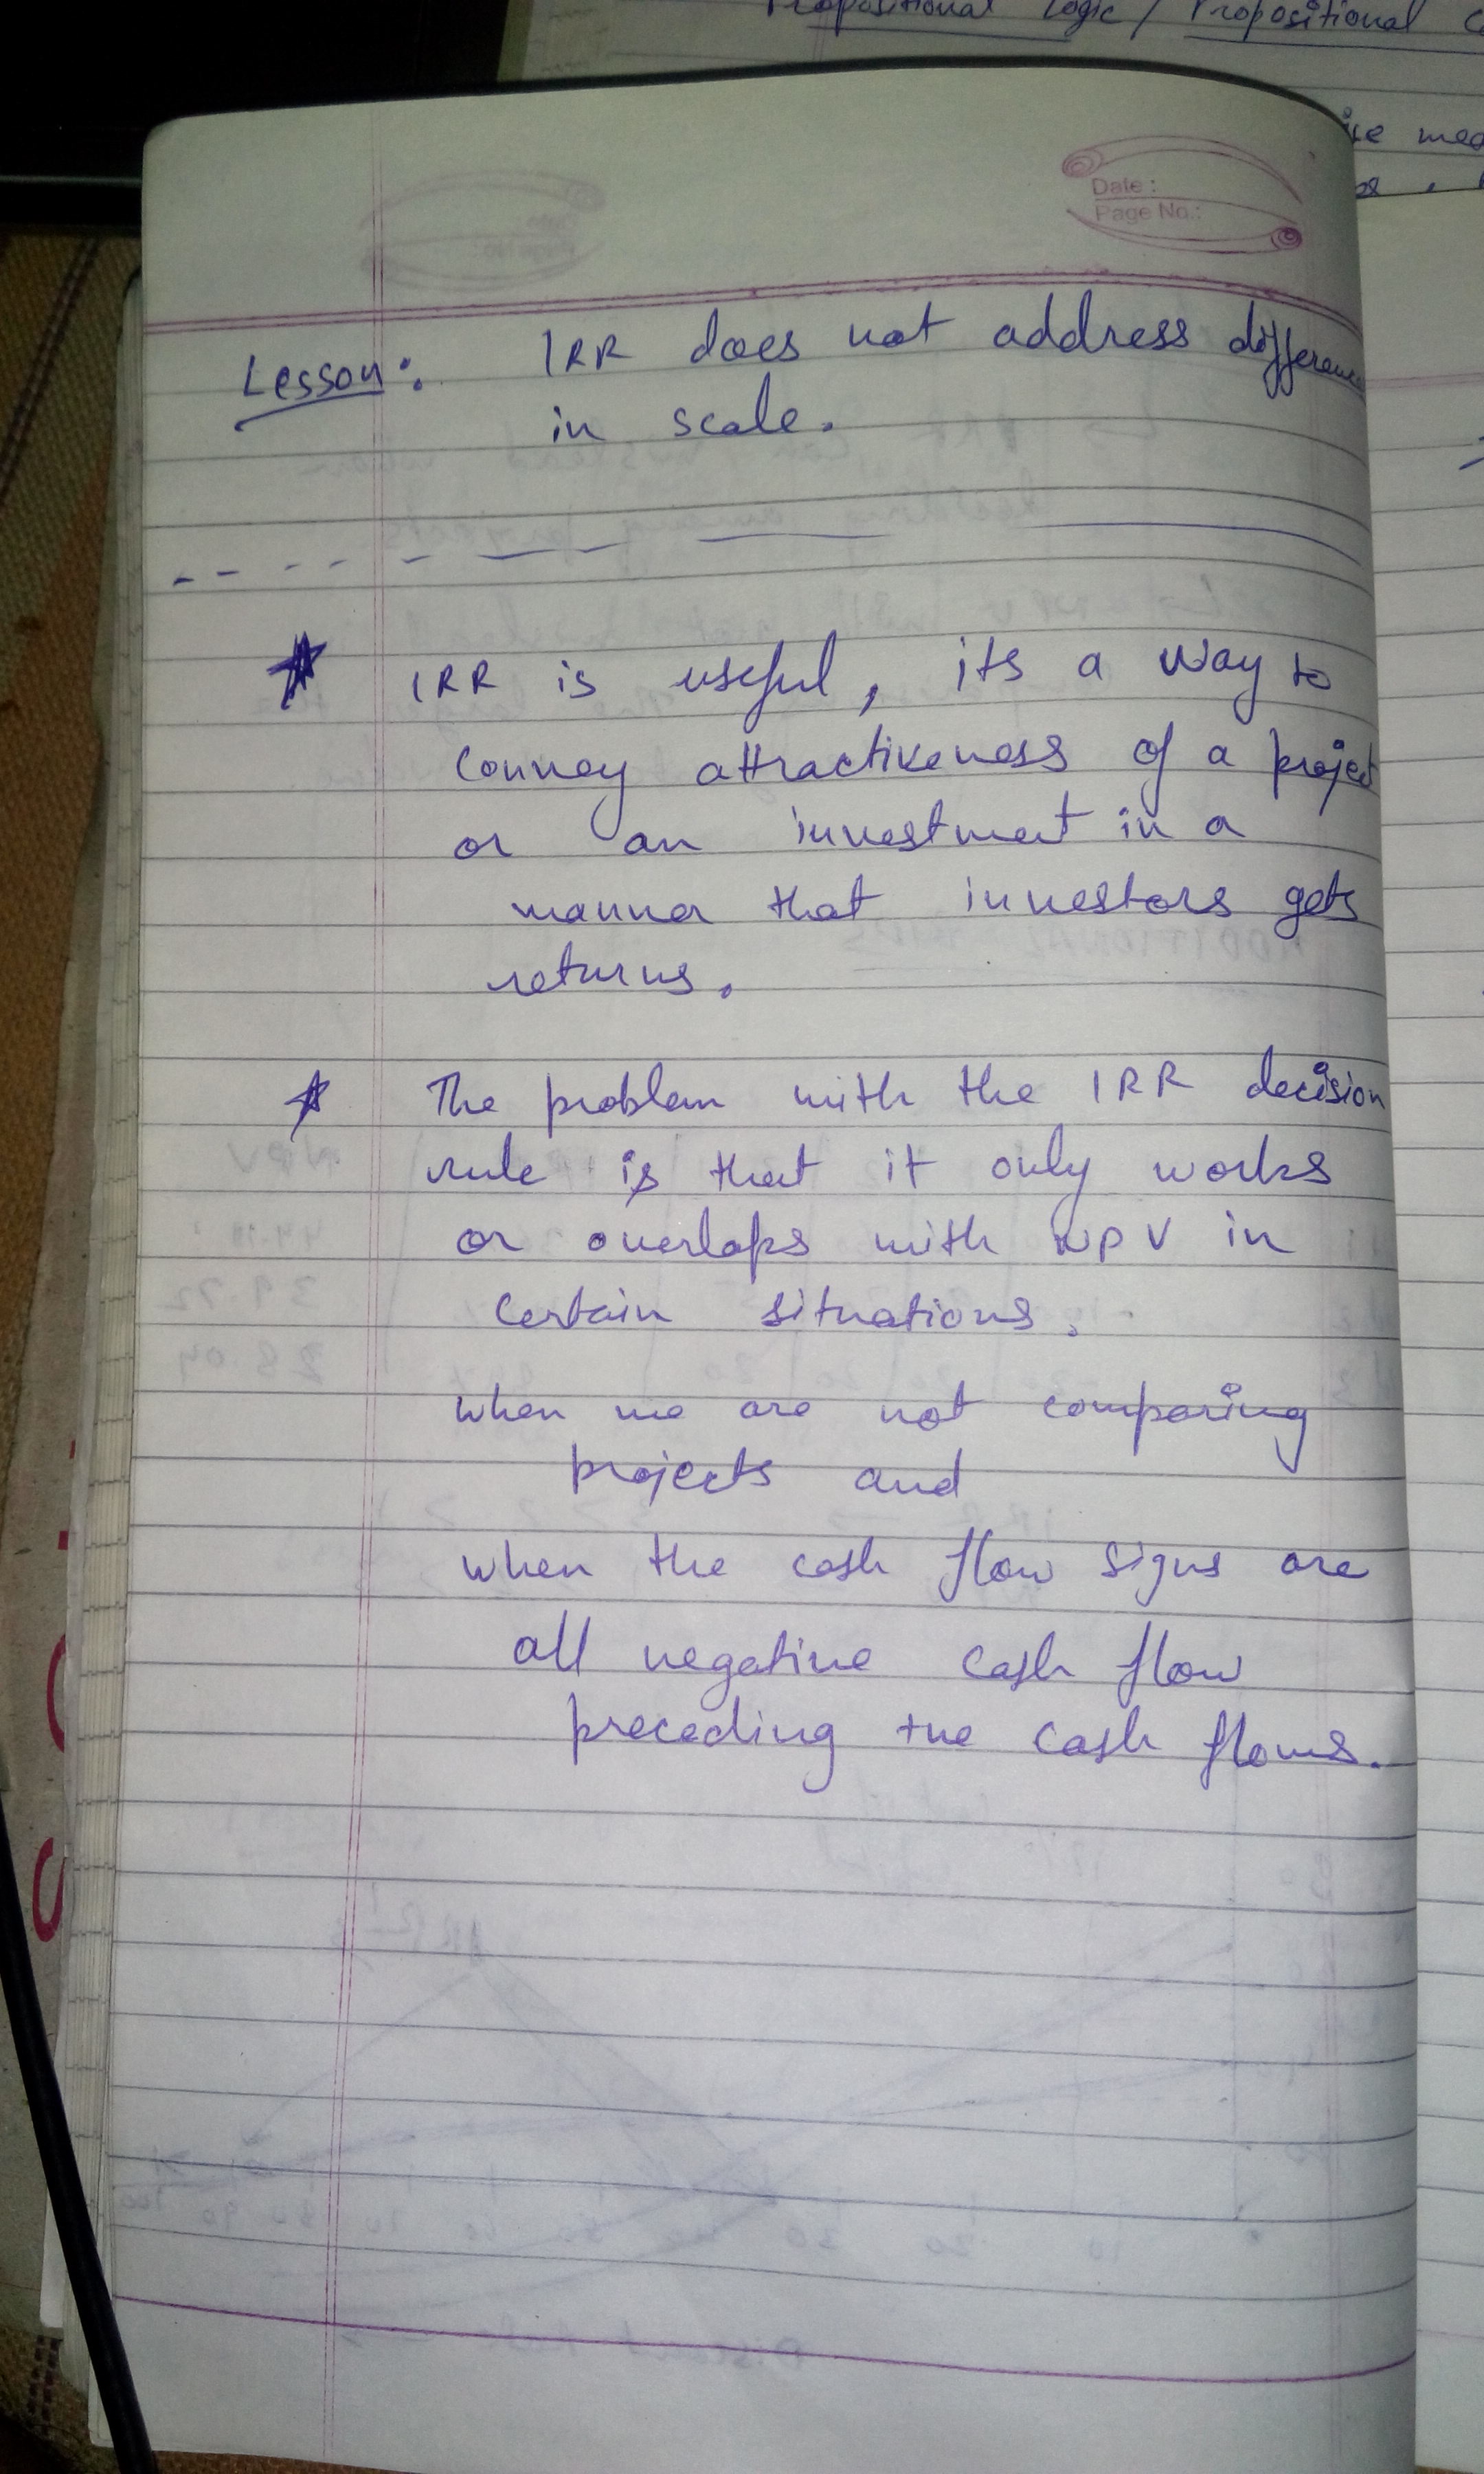 Propositional Logic / Propositional
Date :
Page No.:
Lesson: IRR does not address difference
in scale.
* IRR is useful, its a way to
convey attractiveness of a project
or an investment in a
manner that investors gets
returns.
* The problem with the IRR decision
rule is that it only works
or overlaps with NPV in
certain situations.
when we are not comparing
projects and
when the cash flow signs are
all negative cash flow
preceding +ve cash flows.